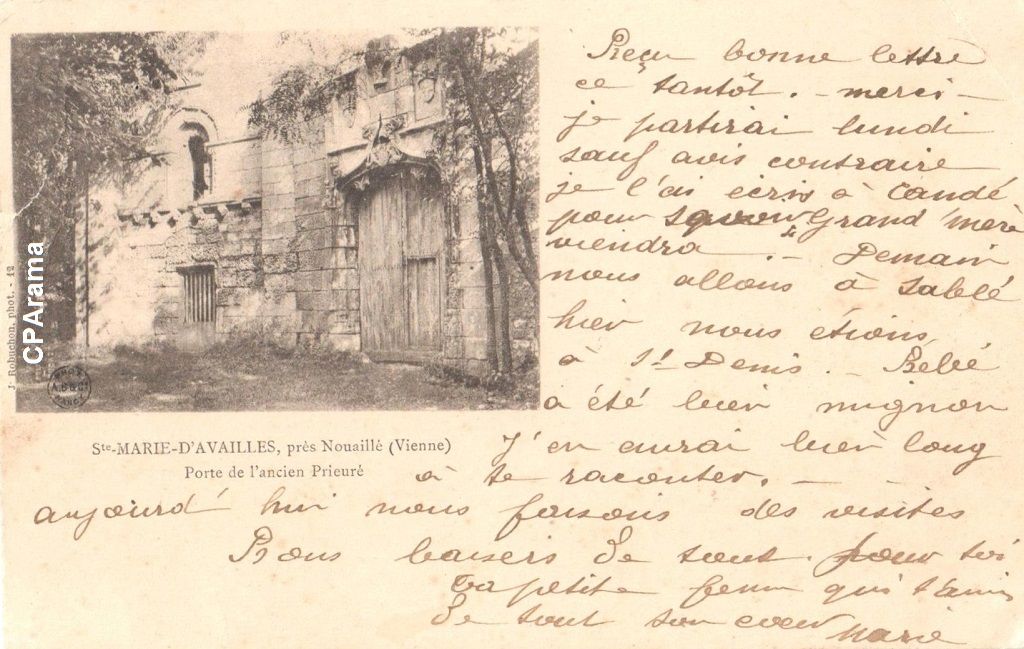 Reçu bonne lettre
ce tantôt. - merci -
je partirai lundi
sauf avis contraire
je l'ai écris à Candé
pour si Grand'mère
viendra. - Demain
nous allons à Sablé
hier nous étions
à St Denis. - Bébé
a été bien mignon
J'en aurai bien long
à te raconter. -
aujourd'hui nous faisons des visites
Bons baisers de tout pour toi
Ta petite femm qui t'aime
de tout son coeur
Marie
J. Robuchon, phot. - 12
CPArama
Ste-MARIE-D'AVAILLES, près Nouaillé (Vienne)
Porte de l'ancien Prieuré